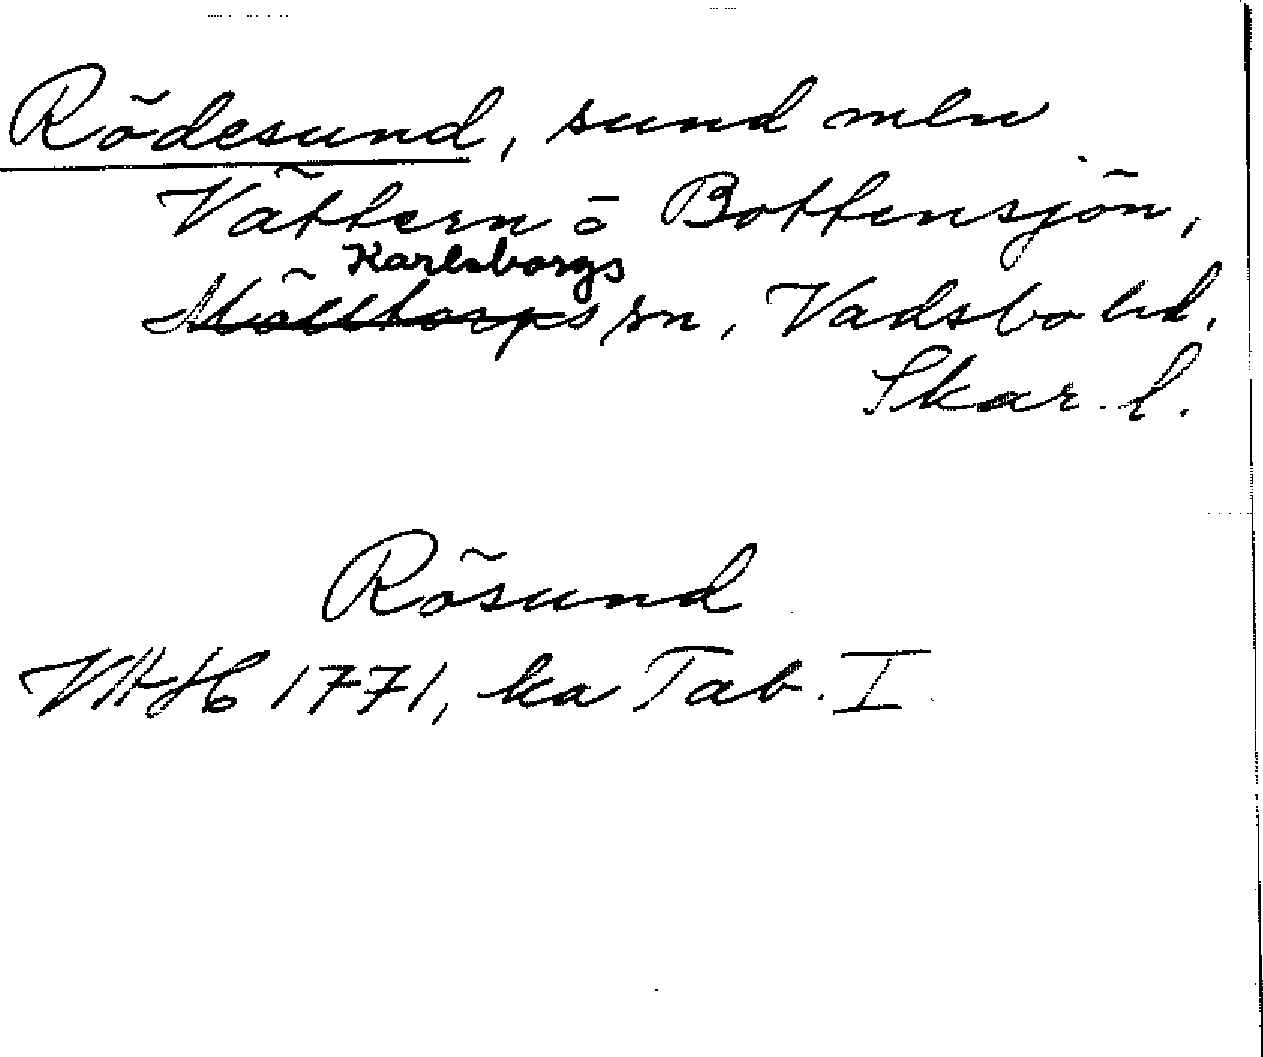 Rödesund, sund mln
Vättern o Bottensjön,
Karlsborgs
Mölltorps sn, Vadsbo hd,
Skar. l.
Rösund
VAH 1771, ka Tab. I